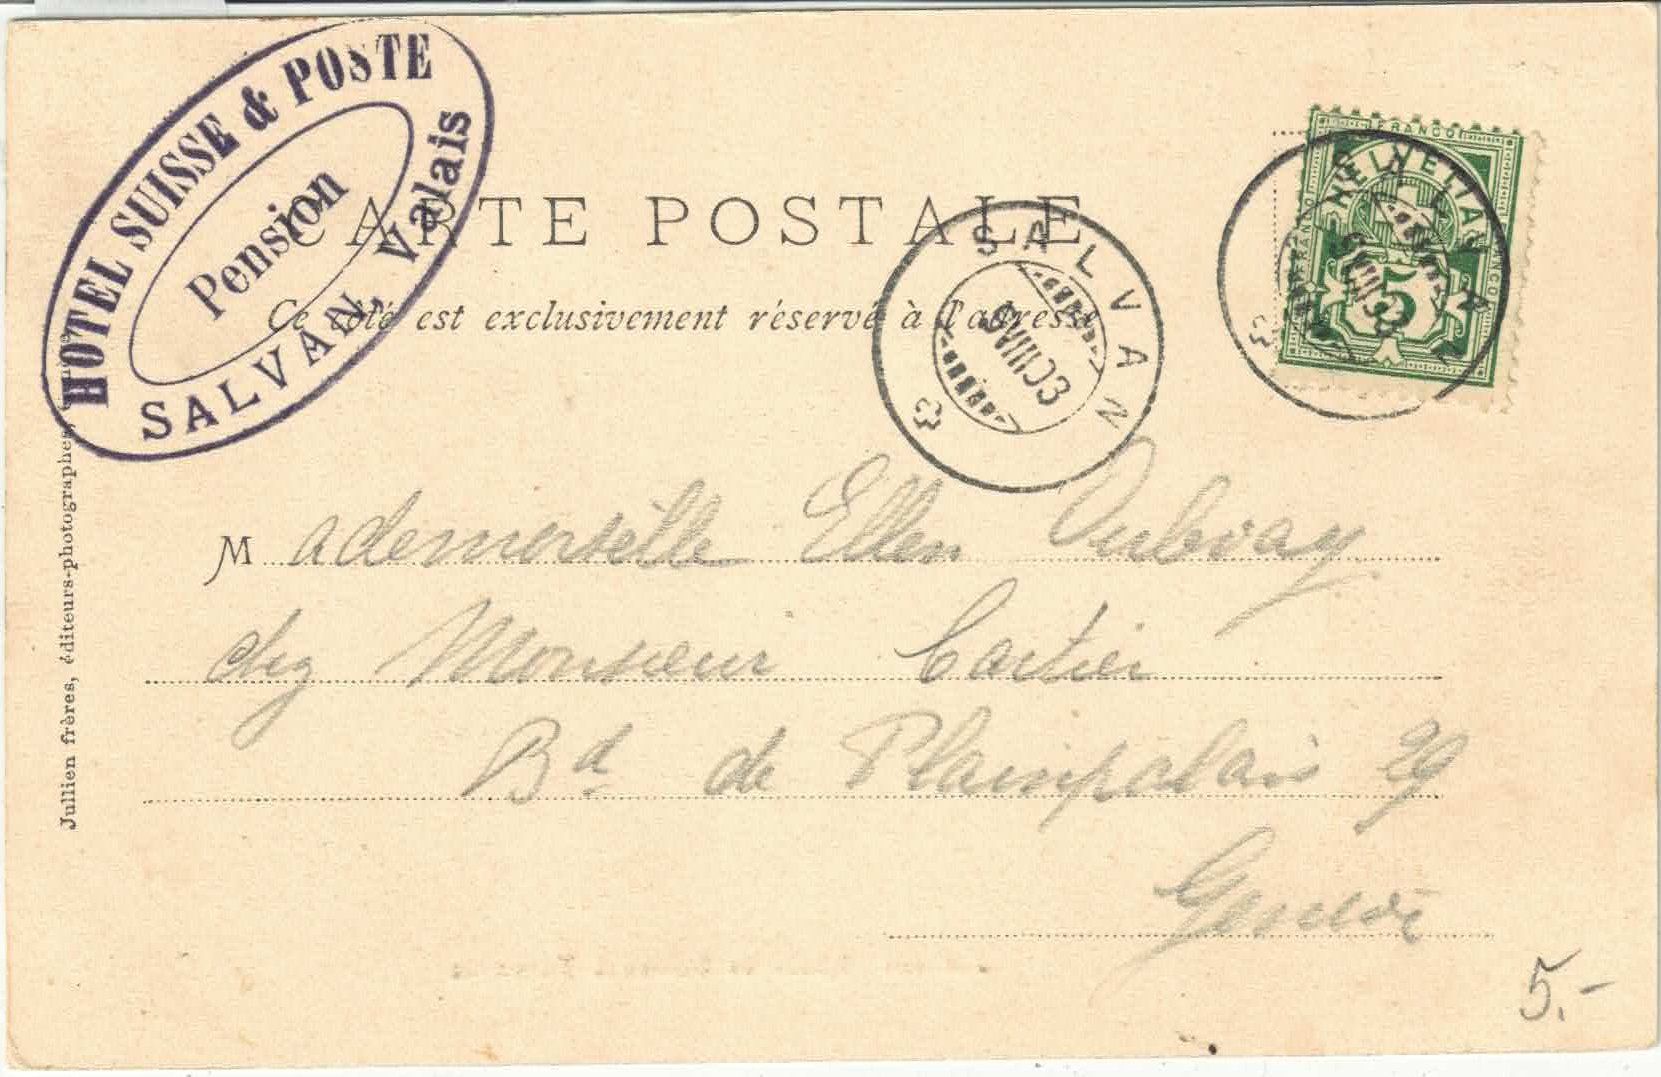 HÔTEL SUISSE & POSTE
Pension
SALVAN, Valais
CARTE POSTALE
Ce côté est exclusivement réservé à l'adresse
SALVAN
VIII 03
FRANCO
HELVETIA
5
SALVAN
VIII 03
Mademoiselle Ellen
chez Monsieur Cartier
Bd de Plainpalais 29
Genève
5.-
Jullien frères, éditeurs-photographes,